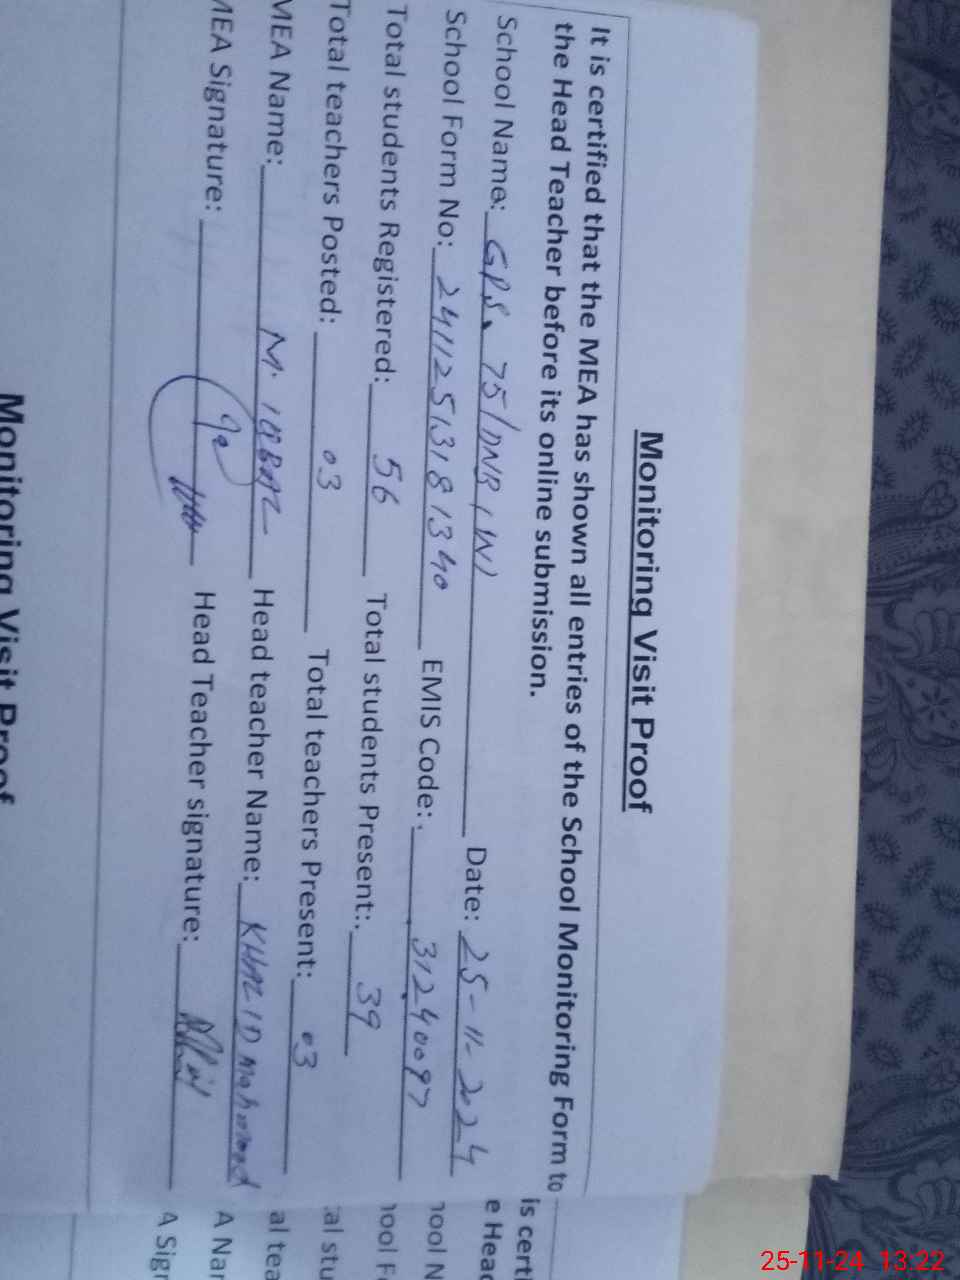 Monitoring Visit Proof
It is certified that the MEA has shown all entries of the School Monitoring Form to
the Head Teacher before its online submission.
School Name: GPS. 75/DNB (W) Date: 25-11-2024
School Form No: 24112513181340 EMIS Code: 31240097
Total students Registered: 56 Total students Present: 39
Total teachers Posted: 03 Total teachers Present: 03
MEA Name: M. IQBAL Head teacher Name: KHALID Mahmood
MEA Signature: Head Teacher signature:
Monitoring Visit Proof
is certi
e Head
hool N
hool F
al stu
al tea
A Nar
A Sigr
25-11-24 13:22